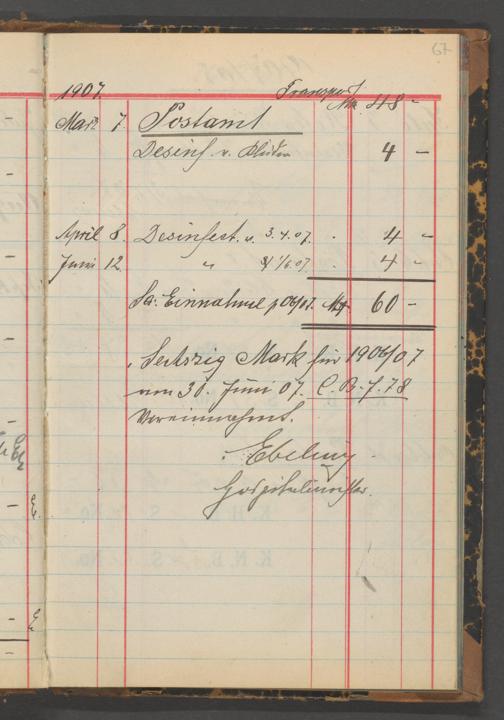 67
1907. Transport Mk. 48 -
März 7. Postamt
Desinf. v. 4 -
April 8. Desinfect. v. 3.4.07. 4 -
Juni 12. " 1/6.07. 4 -
Sa. Einnahme p 06/07. Mk 60 -
Sechszig Mark für 1906/07
am 30. Juni 07. C. B. f. 78
Vereinnahmt.
Ebeling
Hospitalinspektor.